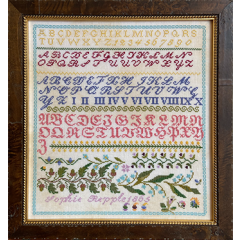 ABCDEFGHIKLMNOPQRS
TUVWXYZ1234567890
ABCDEFGHIKLMN
OPQRSTUVWXYZ
ABCDEFGHIKLM
NOPQRSTUVWX
YZ I II III IV V VI VII VIII IX X
ABCDEFGIKLMN
OPQRSTUVWXY
Z
Sophie Repple 1885